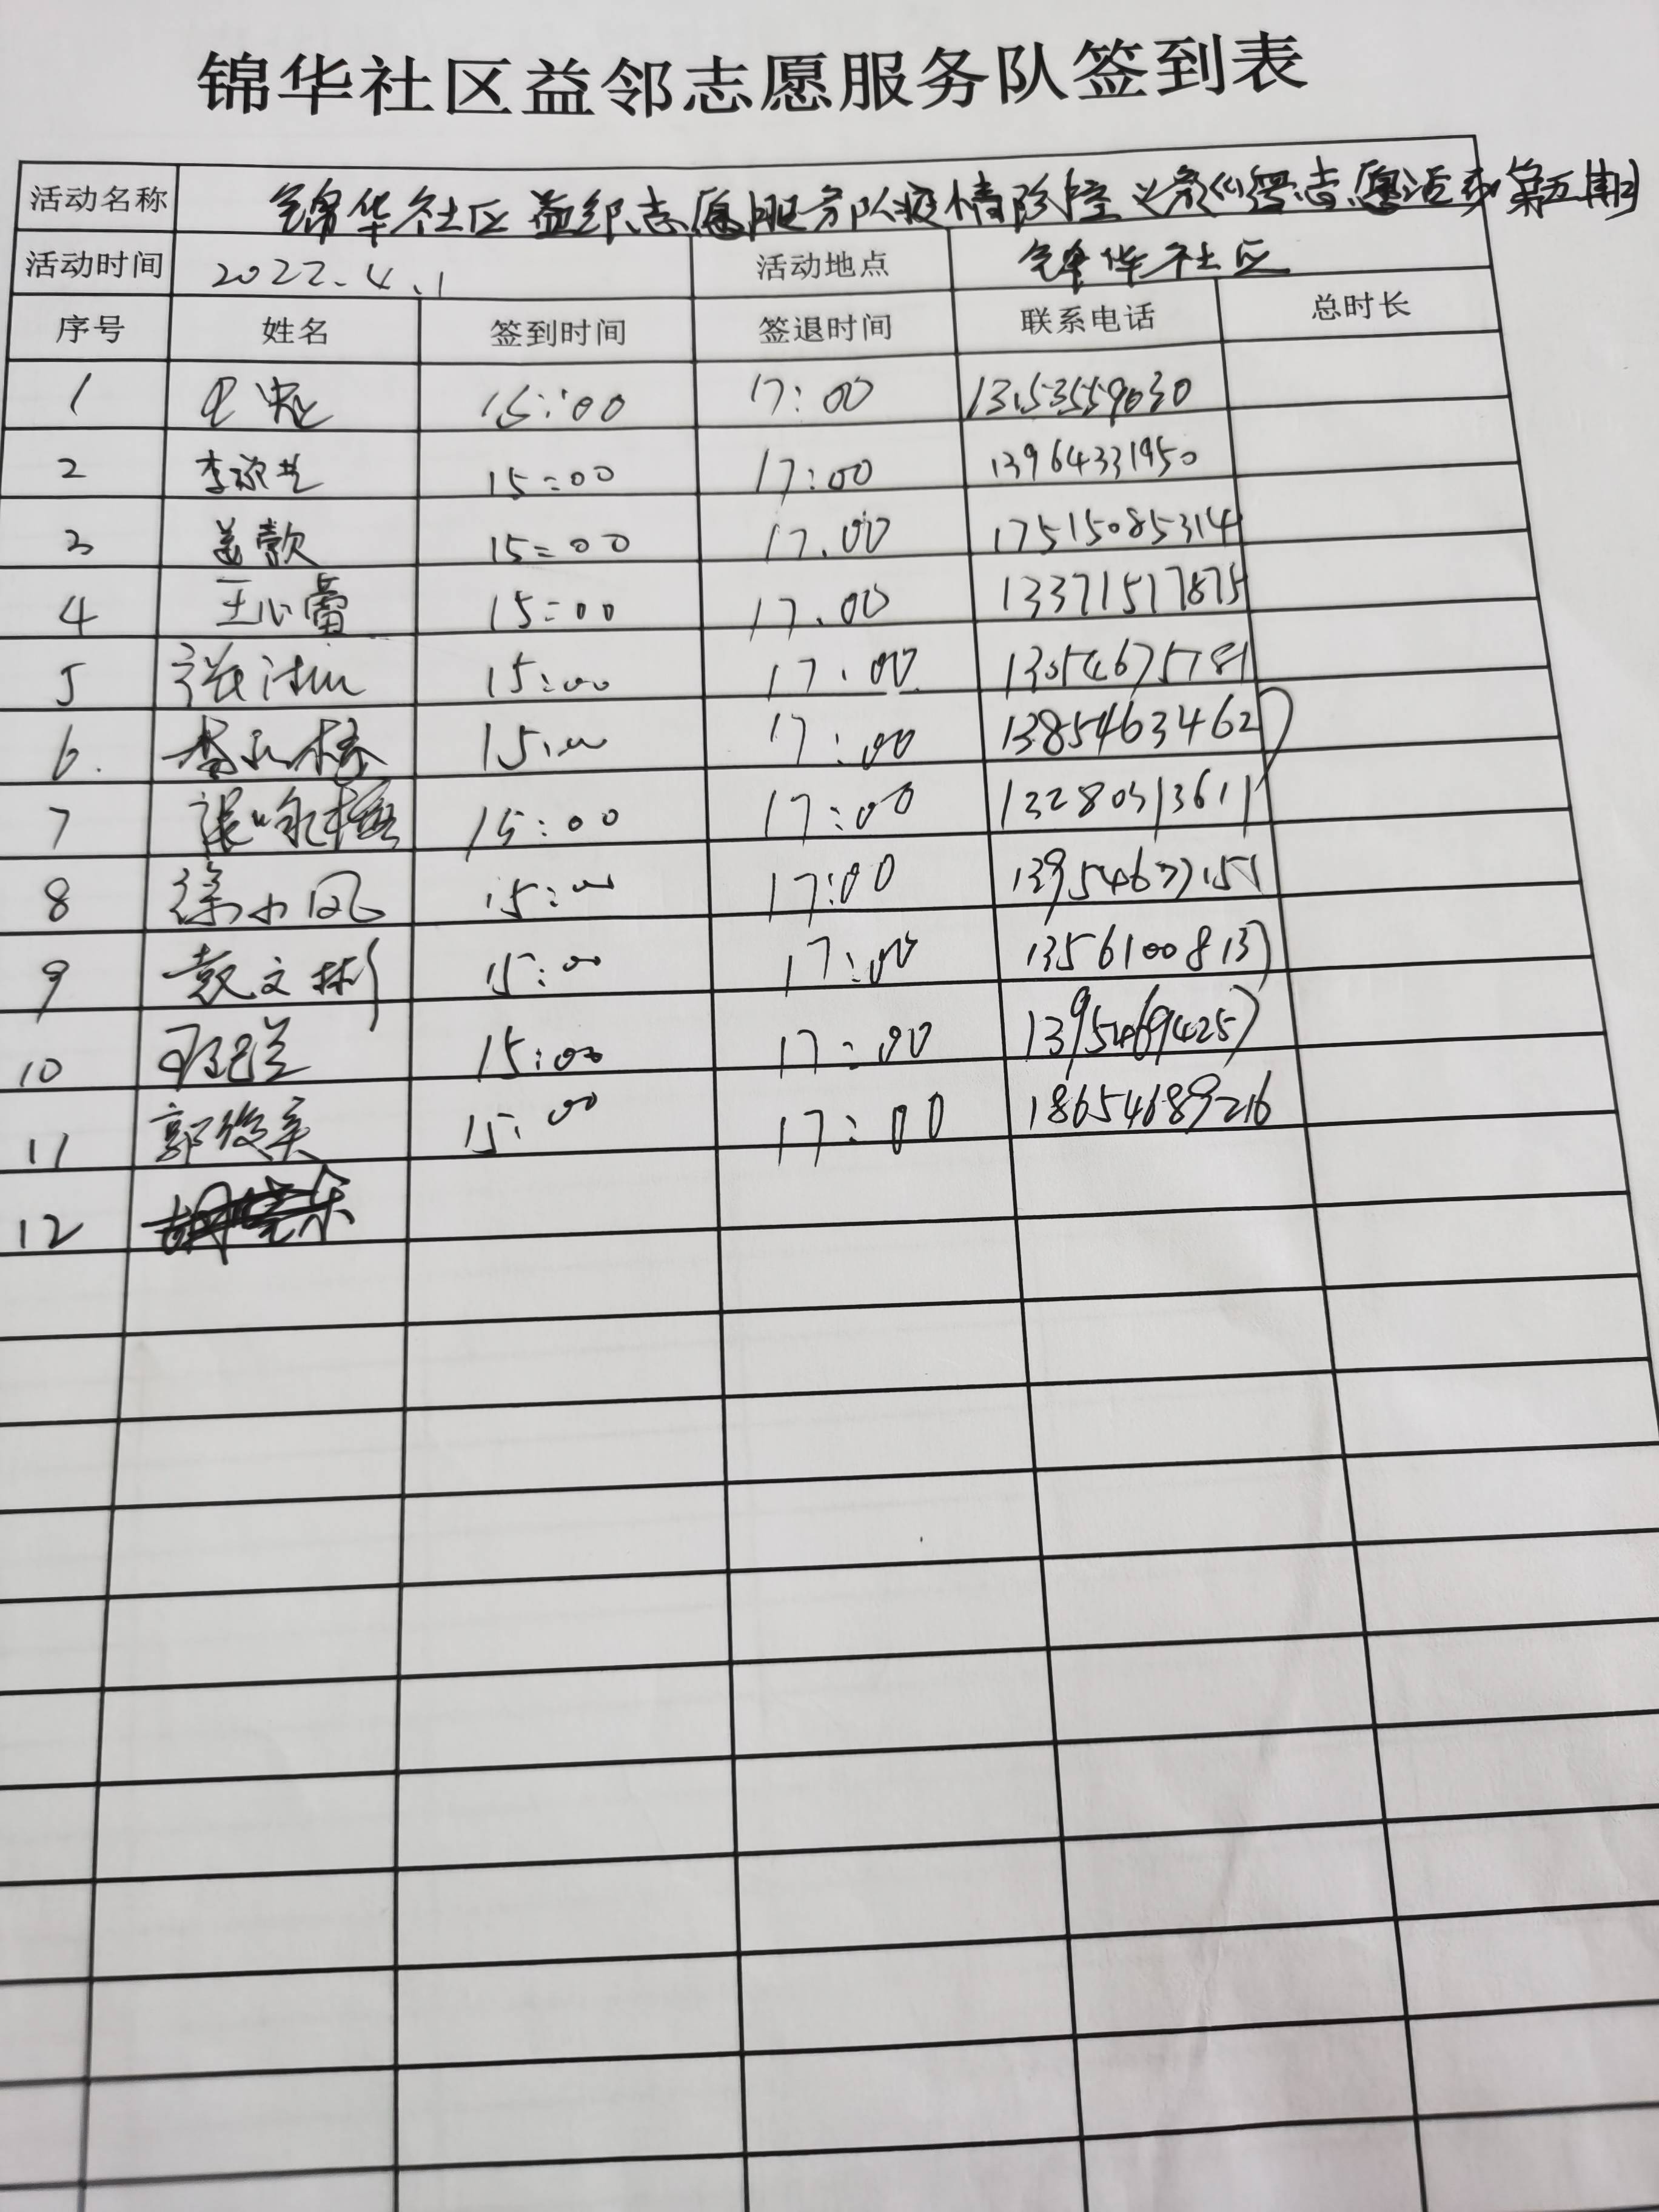 锦华社区益邻志愿服务队签到表
活动名称 锦华社区益邻志愿服务队疫情防控义务巡逻志愿活动第五期
活动时间 2022.4.1 活动地点 锦华社区
序号 姓名 签到时间 签退时间 联系电话 总时长
1 15:00 17:00 13153559030
2 15:00 17:00 13964331950
3 盖歌 15:00 17.00 17515085314
4 王心蕾 15:00 17.00 13371517875
5 15:00 17:00 13054675781
6. 15:00 17:00 13854634627
7 15:00 17:00 13280313611
8 徐小凤 15:00 17:00 13954677151
9 袁文彬 15:00 17:00 13561008137
10 15:00 17:00 13954694257
11 郭俊亲 15:00 17:00 18654689216
12